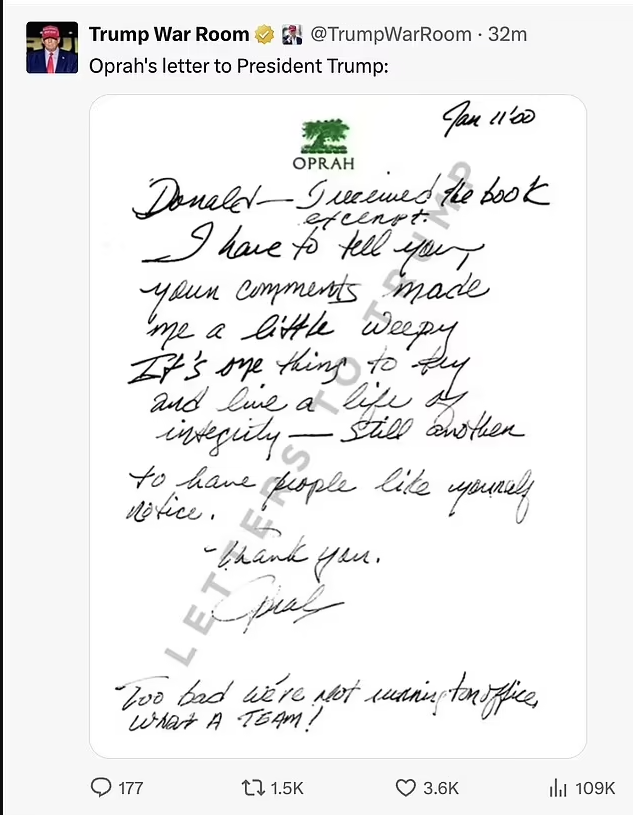 Trump War Room @TrumpWarRoom · 32m
Oprah's letter to President Trump:
Jan 11'00
OPRAH
Donald— I received the book
excerpt.
I have to tell you,
your comments made
me a little weepy
It's one thing to try
and live a life of
integrity — still another
to have people like yourself
notice.
-Thank you.
Oprah
Too bad we're not running for office,
WHAT A TEAM!
LETTERS TO TRUMP
177 1.5K 3.6K 109K